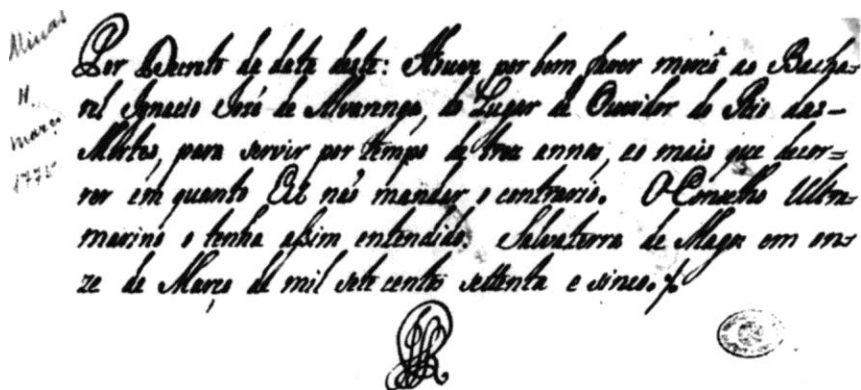 Minas
11.
março
1775
Por Decreto da data deste: Houve por bem fazer mercê ao Bacha=
rel Ignacio José de Alvarenga, do Lugar de Ouvidor do Rio das=
Mortes, para servir por tempo de tres annos, e o mais que decor=
rer em quanto Eu não mandar o contrario. O Conselho Ultra=
marino o tenha assim entendido. Salvaterra de Magos em on=
ze de Março de mil sete centos settenta e sinco.